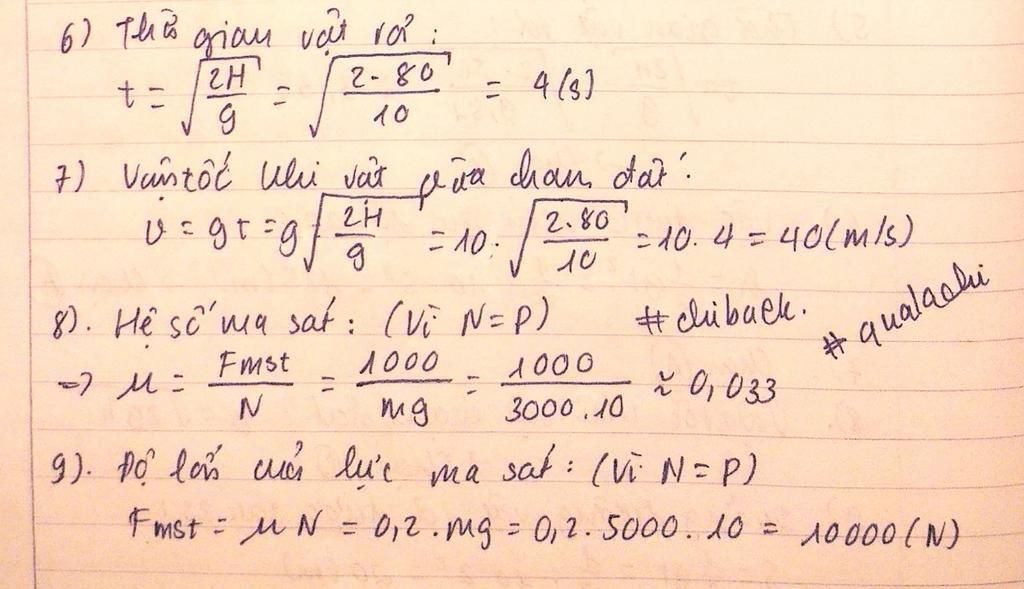 6) Thời gian vật rơi:
t = √(2H/g) = √(2.80/10) = 4(s)
7) Vận tốc khi vật vừa chạm đất:
v = gt = g√(2H/g) = 10.√(2.80/10) = 10.4 = 40(m/s)
8). Hệ số ma sát: (Vì N=P) #chiback. #qualachi
=> μ = Fmst/N = 1000/mg = 1000/3000.10 ≈ 0,033
9). Độ lớn của lực ma sát: (Vì N=P)
Fmst = μN = 0,2.mg = 0,2.5000.10 = 10000(N)